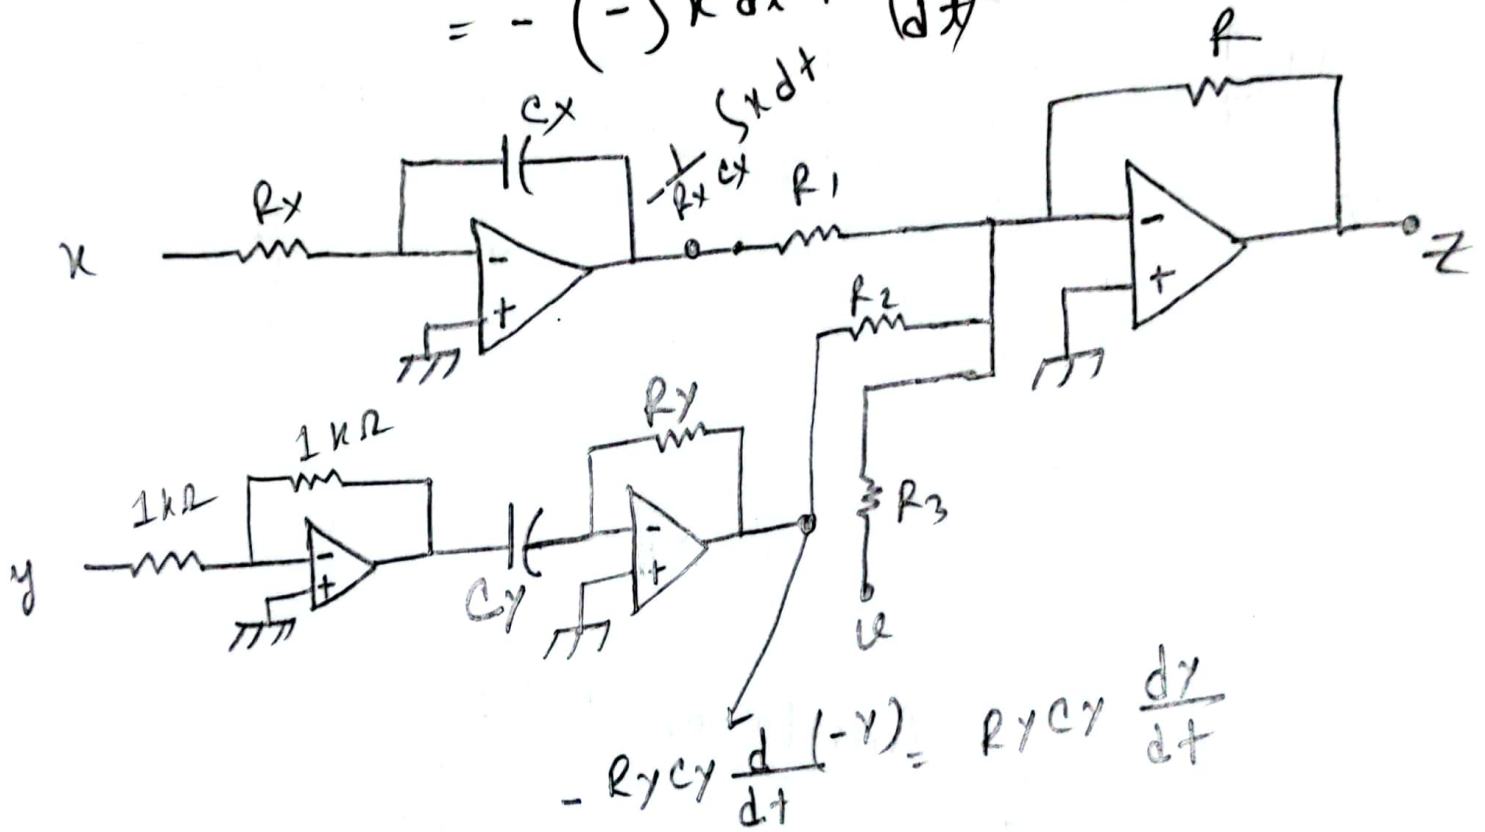 = - (- ∫ x dx
dt)
R
Cx
- 1/Rx Cx ∫ x dt
Rx
R1
x
-
+
-
+
z
R2
Ry
1kΩ
1kΩ
R3
y
-
+
Cy
-
+
- RyCy d/dt (-y) = RyCy dy/dt